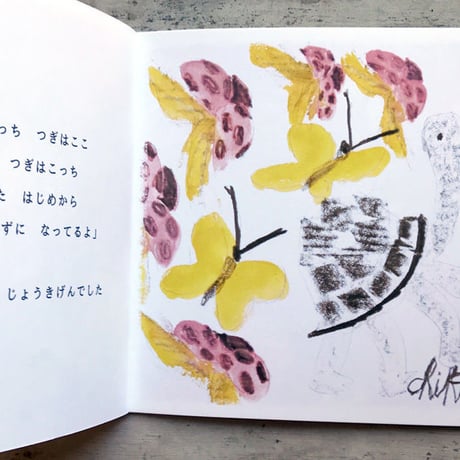 っち つぎはここ
つぎはこっち
た はじめから
ずに なってるよ」
じょうきげんでした